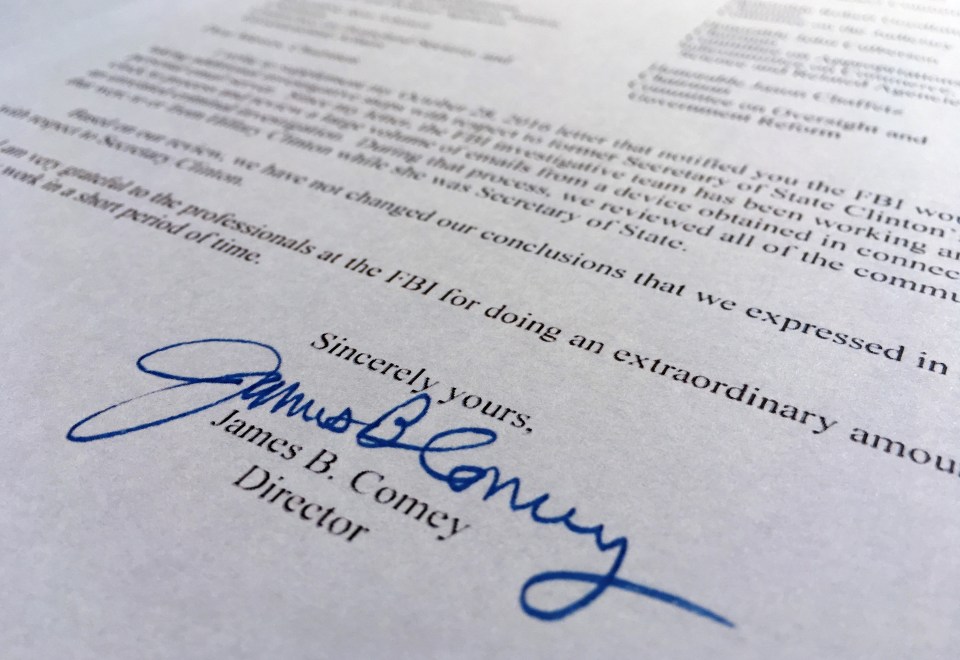 Honorable John Culberson
Chairman
Committee on Appropriations
Subcommittee on Commerce,
Science and Related Agencies
Honorable Jason Chaffetz
Chairman
Committee on Oversight and
Government Reform
supplement my October 28, 2016 letter that notified you the FBI wou
steps with respect to former Secretary of State Clinton's
Since my letter, the FBI investigative team has been working ar
review a large volume of emails from a device obtained in connec
investigation. During that process, we reviewed all of the commu
that were to or from Hillary Clinton while she was Secretary of State.
Based on our review, we have not changed our conclusions that we expressed in
with respect to Secretary Clinton.
I am very grateful to the professionals at the FBI for doing an extraordinary amou
work in a short period of time.
Sincerely yours,
James B Comey
James B. Comey
Director